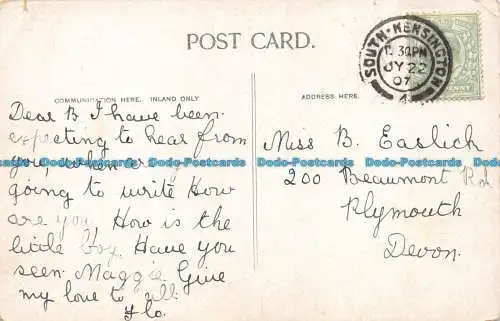 POST CARD.
SOUTH-KENSINGTON
.30PM
JY 22
07
4
COMMUNICATION HERE. INLAND ONLY
ADDRESS HERE.
Dear B I have been
expecting to hear from
you, when
going to write How
are you, How is the
little boy. Have you
seen Maggie Give
my love to all.
Flo.
Miss B. Easlich
200 Beaumont Rd
Plymouth
Devon.
Dodo-Postcards Dodo-Postcards Dodo-Postcards Dodo-Postcards Dodo-Postcards